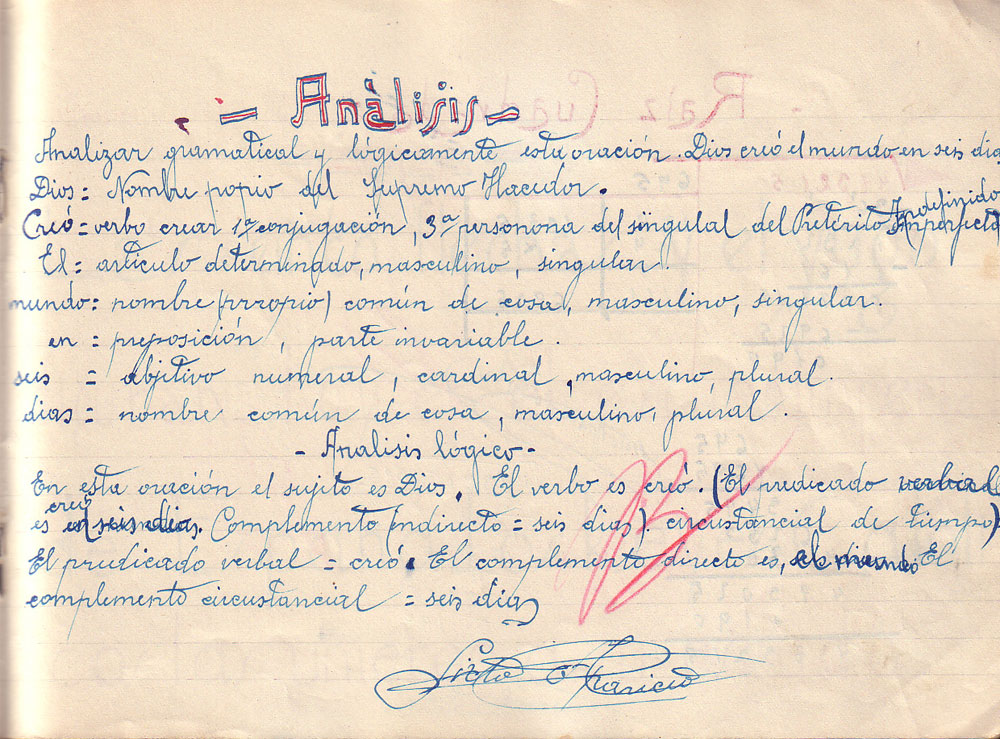 - Anàlisis -
Analizar gramatical y lógicamente esta oración. Dios creó el mundo en seis dias
Dios = Nombre popio del Supremo Hacedor.
Indefinido
Creó = verbo crear 1ª conjugación, 3ª personona del singulal del Pretérito Imperfecto
El = artículo determinado, masculino, singular.
mundo = nombre (prropio) común de cosa, masculino, singular.
en = preposición, parte invariable.
seis = abjetivo numeral, cardinal, masculino, plural.
dias = nombre común de cosa, masculino, plural.
- Analisis lógico -
En esta oración el sujeto es Dios. El verbo es creó. (El predicado verbal
creó
es en (seis dias. Complemento indirecto = seis dias) circustancial de tiempo)
El predicado verbal = creó. El complemento directo es, el mundo El
complemento circustancial = seis dias
B
Sixto Aparicio
Raiz Cuadrada